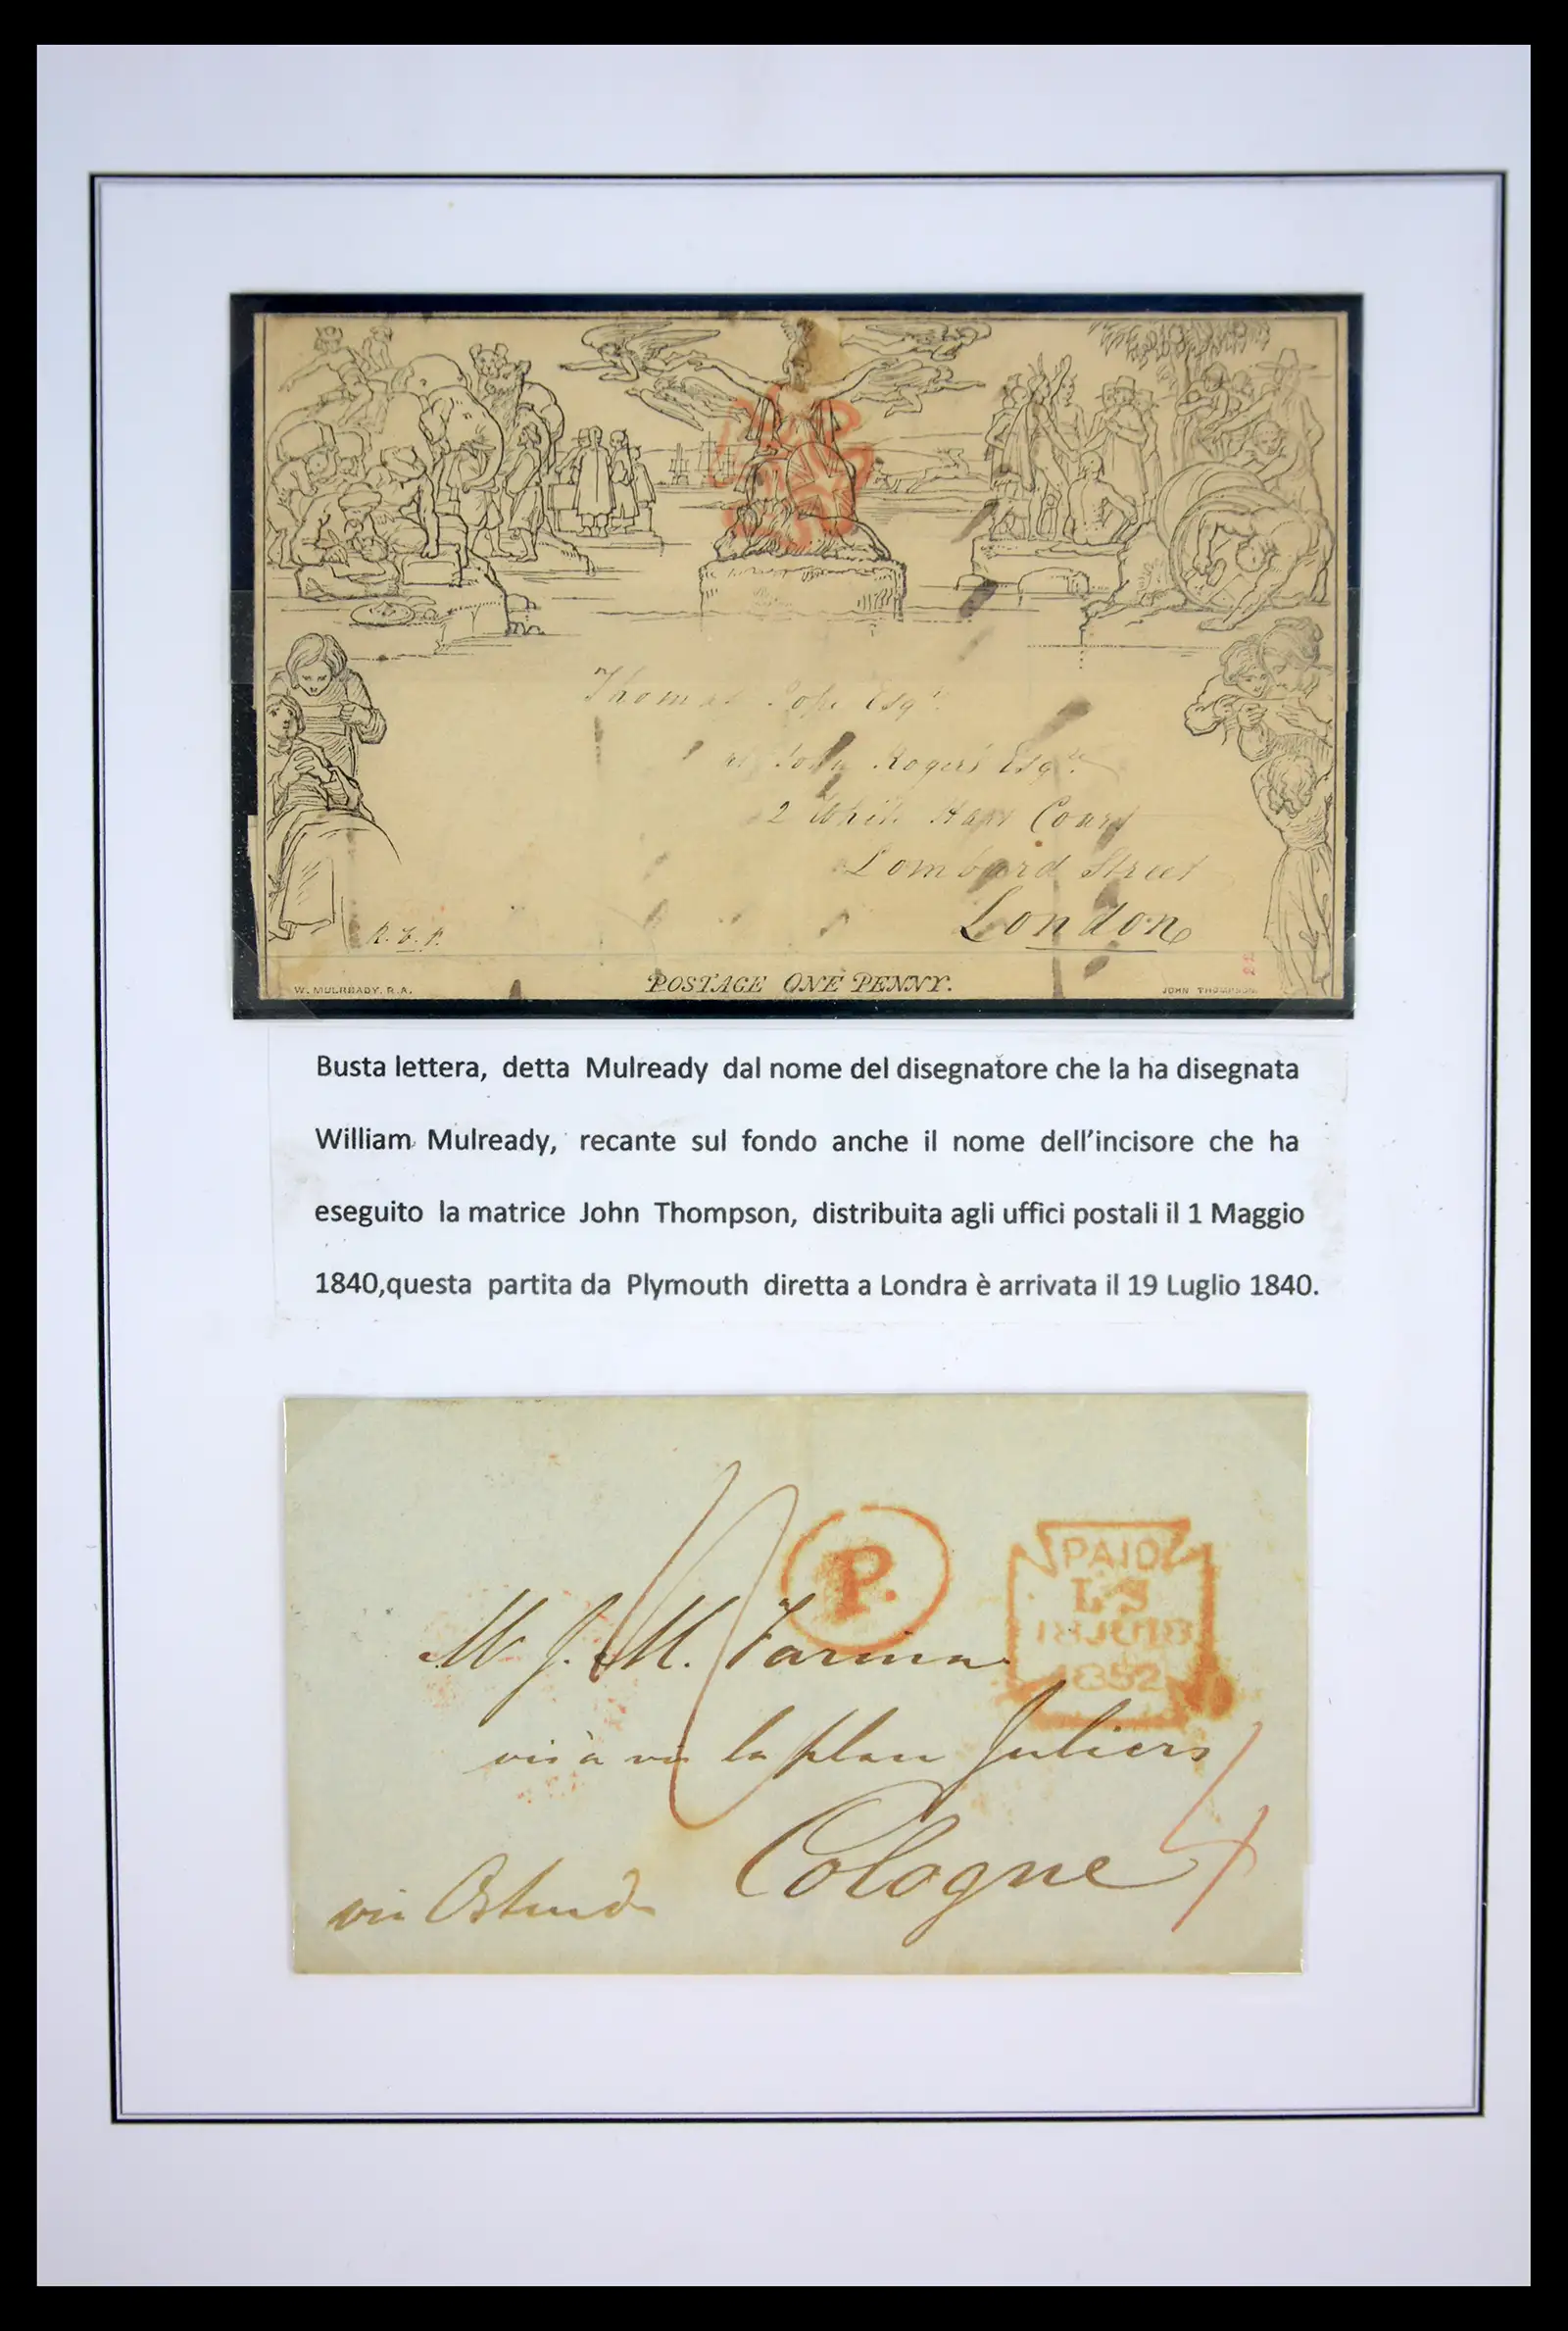 Thomas Pope Esqr.
at John Rogers Esqre.
2 White Hart Court
Lombard Street
London
R. J. P.
22
W. MULREADY. R.A.
POSTAGE ONE PENNY.
JOHN THOMPSON.
Busta lettera, detta Mulready dal nome del disegnatore che la ha disegnata
William Mulready, recante sul fondo anche il nome dell'incisore che ha
eseguito la matrice John Thompson, distribuita agli uffici postali il 1 Maggio
1840,questa partita da Plymouth diretta a Londra è arrivata il 19 Luglio 1840.
P.
PAID
1852
Mr J. M. Farina
vis à vis la place Juliers
Cologne
via Ostende